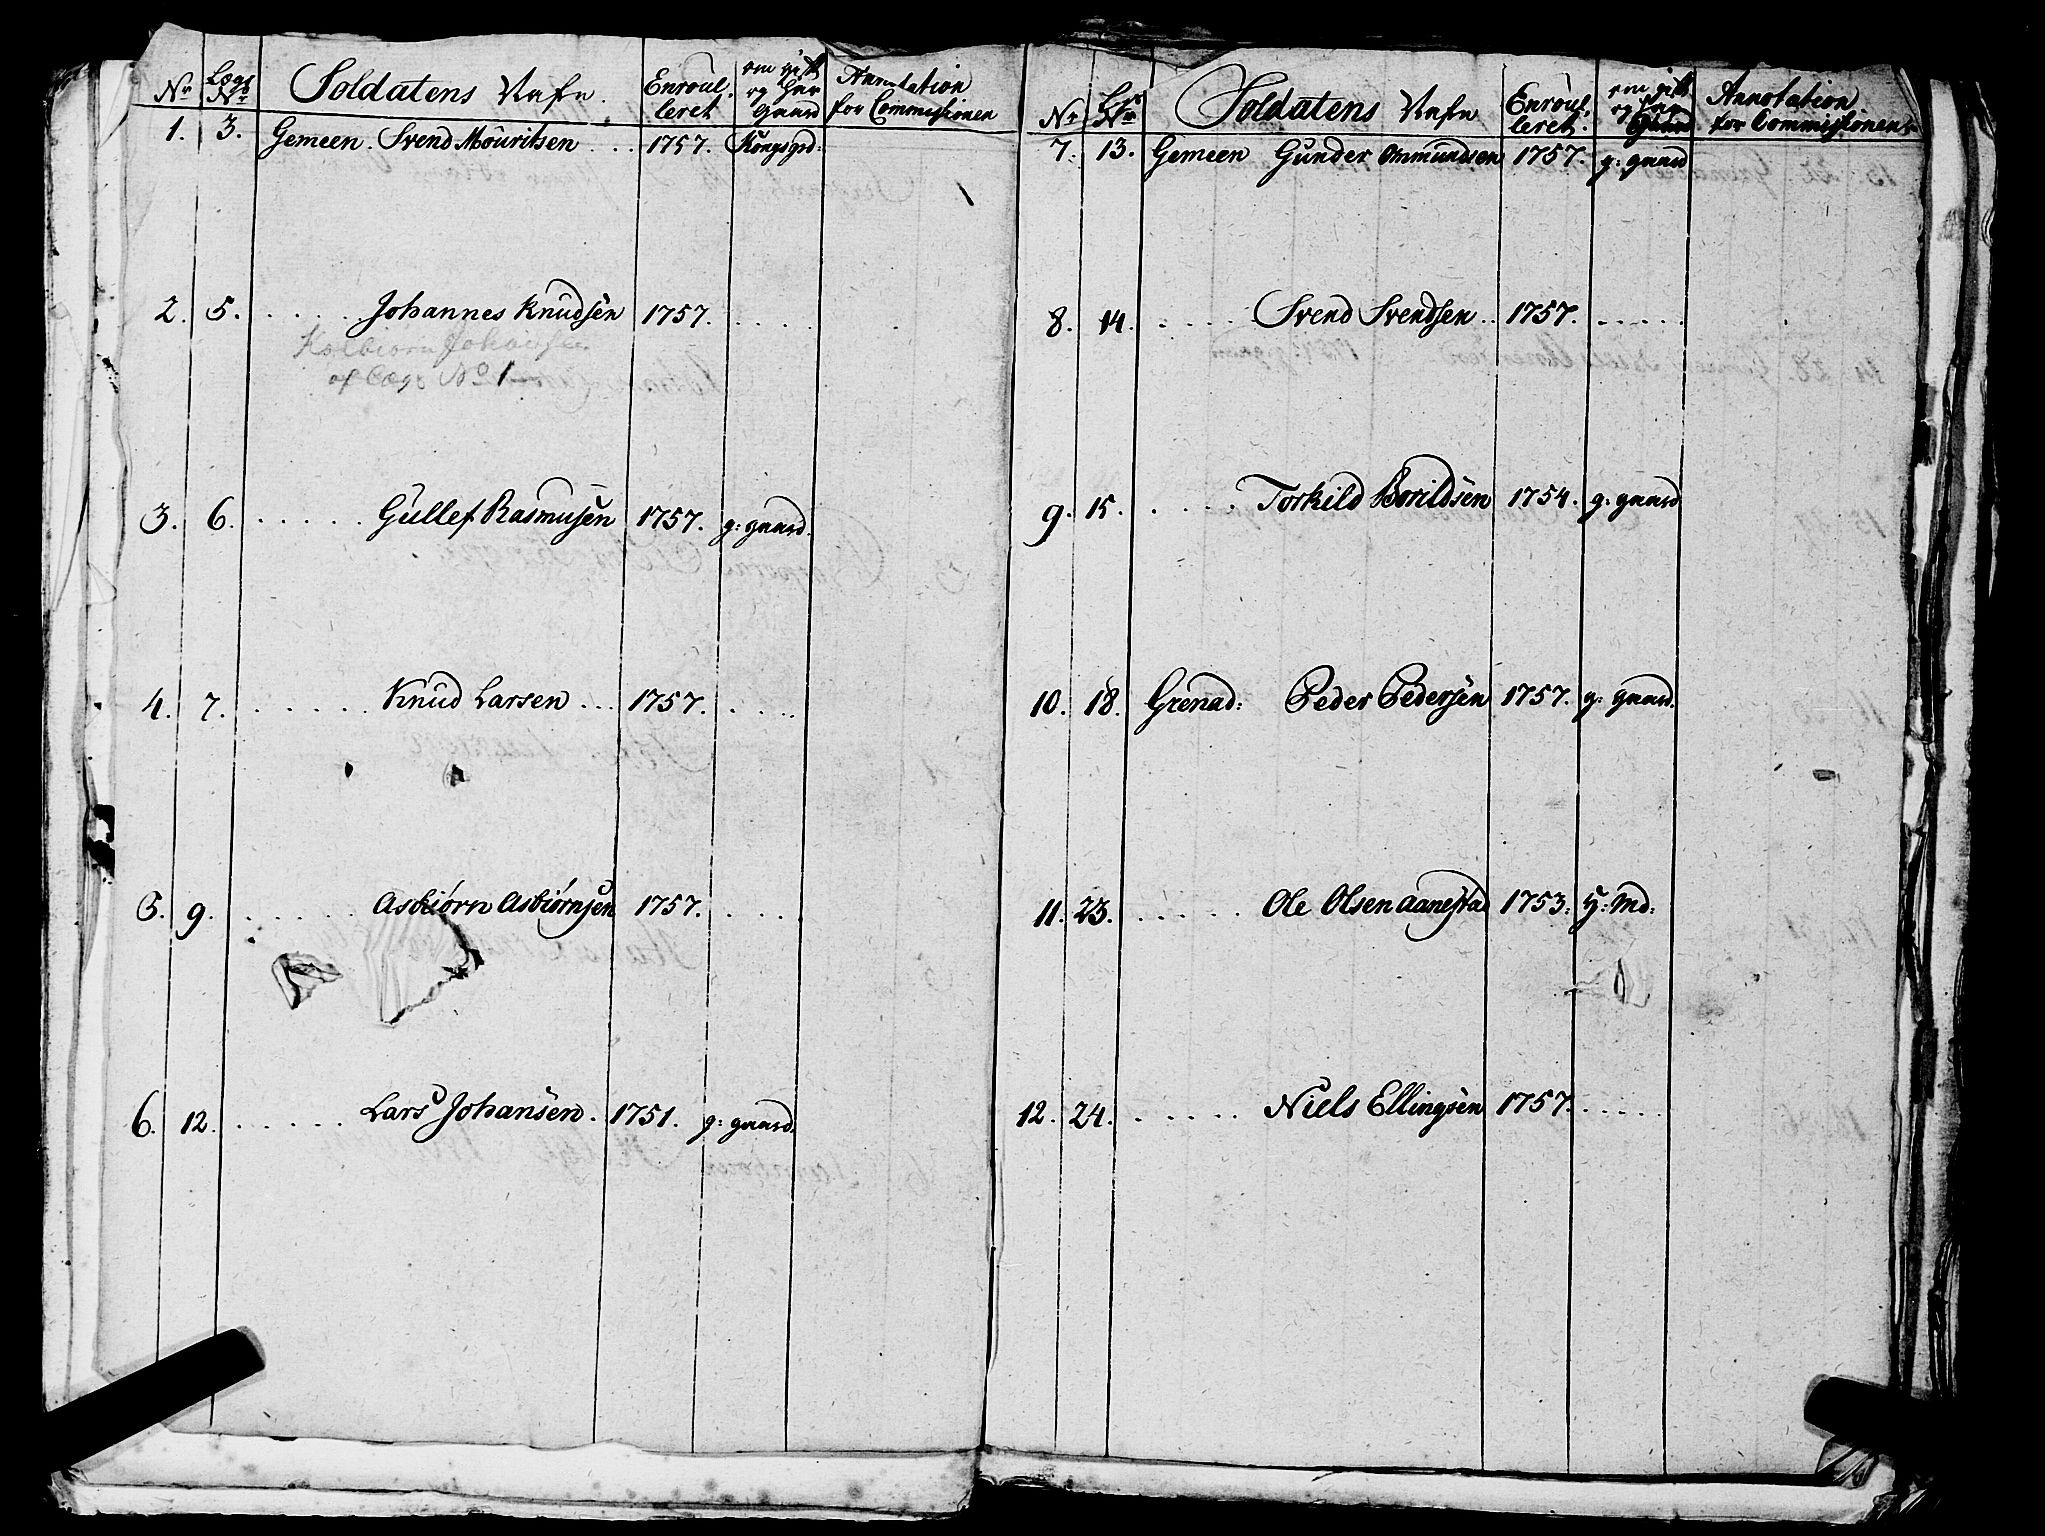 Nr Lægs Nr Soldatens Nafn. Enroulleret om gift og har Gaard Annotation for Commissionen
1. 3. Gemeen. Svend Mouritsen . . 1757. Kongsgrd:
2. 5. . . . . . Johannes Knudsen 1757. . . . .
Kolbiørn Johansen
af Lægs No 1
3. 6. . . . . . Gullef Rasmusen 1757. g: gaard.
4. 7. . . . . . Knud Larsen . . . 1757. . . . .
5. 9. . . . . . Asbiørn Asbiørnsen 1757. . . . .
6. 12. . . . . . Lars Johansen. 1751. g: gaard.
Nr Nr Soldatens Nafn Enroulleret. om gift og har Gaard Annotation for Commissionen
7. 13. Gemeen Gunder Ommundsen 1757. g: gaard
8. 14. . . . . Svend Svendsen . . 1757. . . . . .
9. 15. . . . . Torkild 1754. g: gaard
10. 18. Grenad: Peder Pedersen 1757. g: gaard.
11. 23. . . . . . Ole Olsen Aanestad 1753.
12. 24. . . . . . Niels Ellingsen 1757. . . . . .